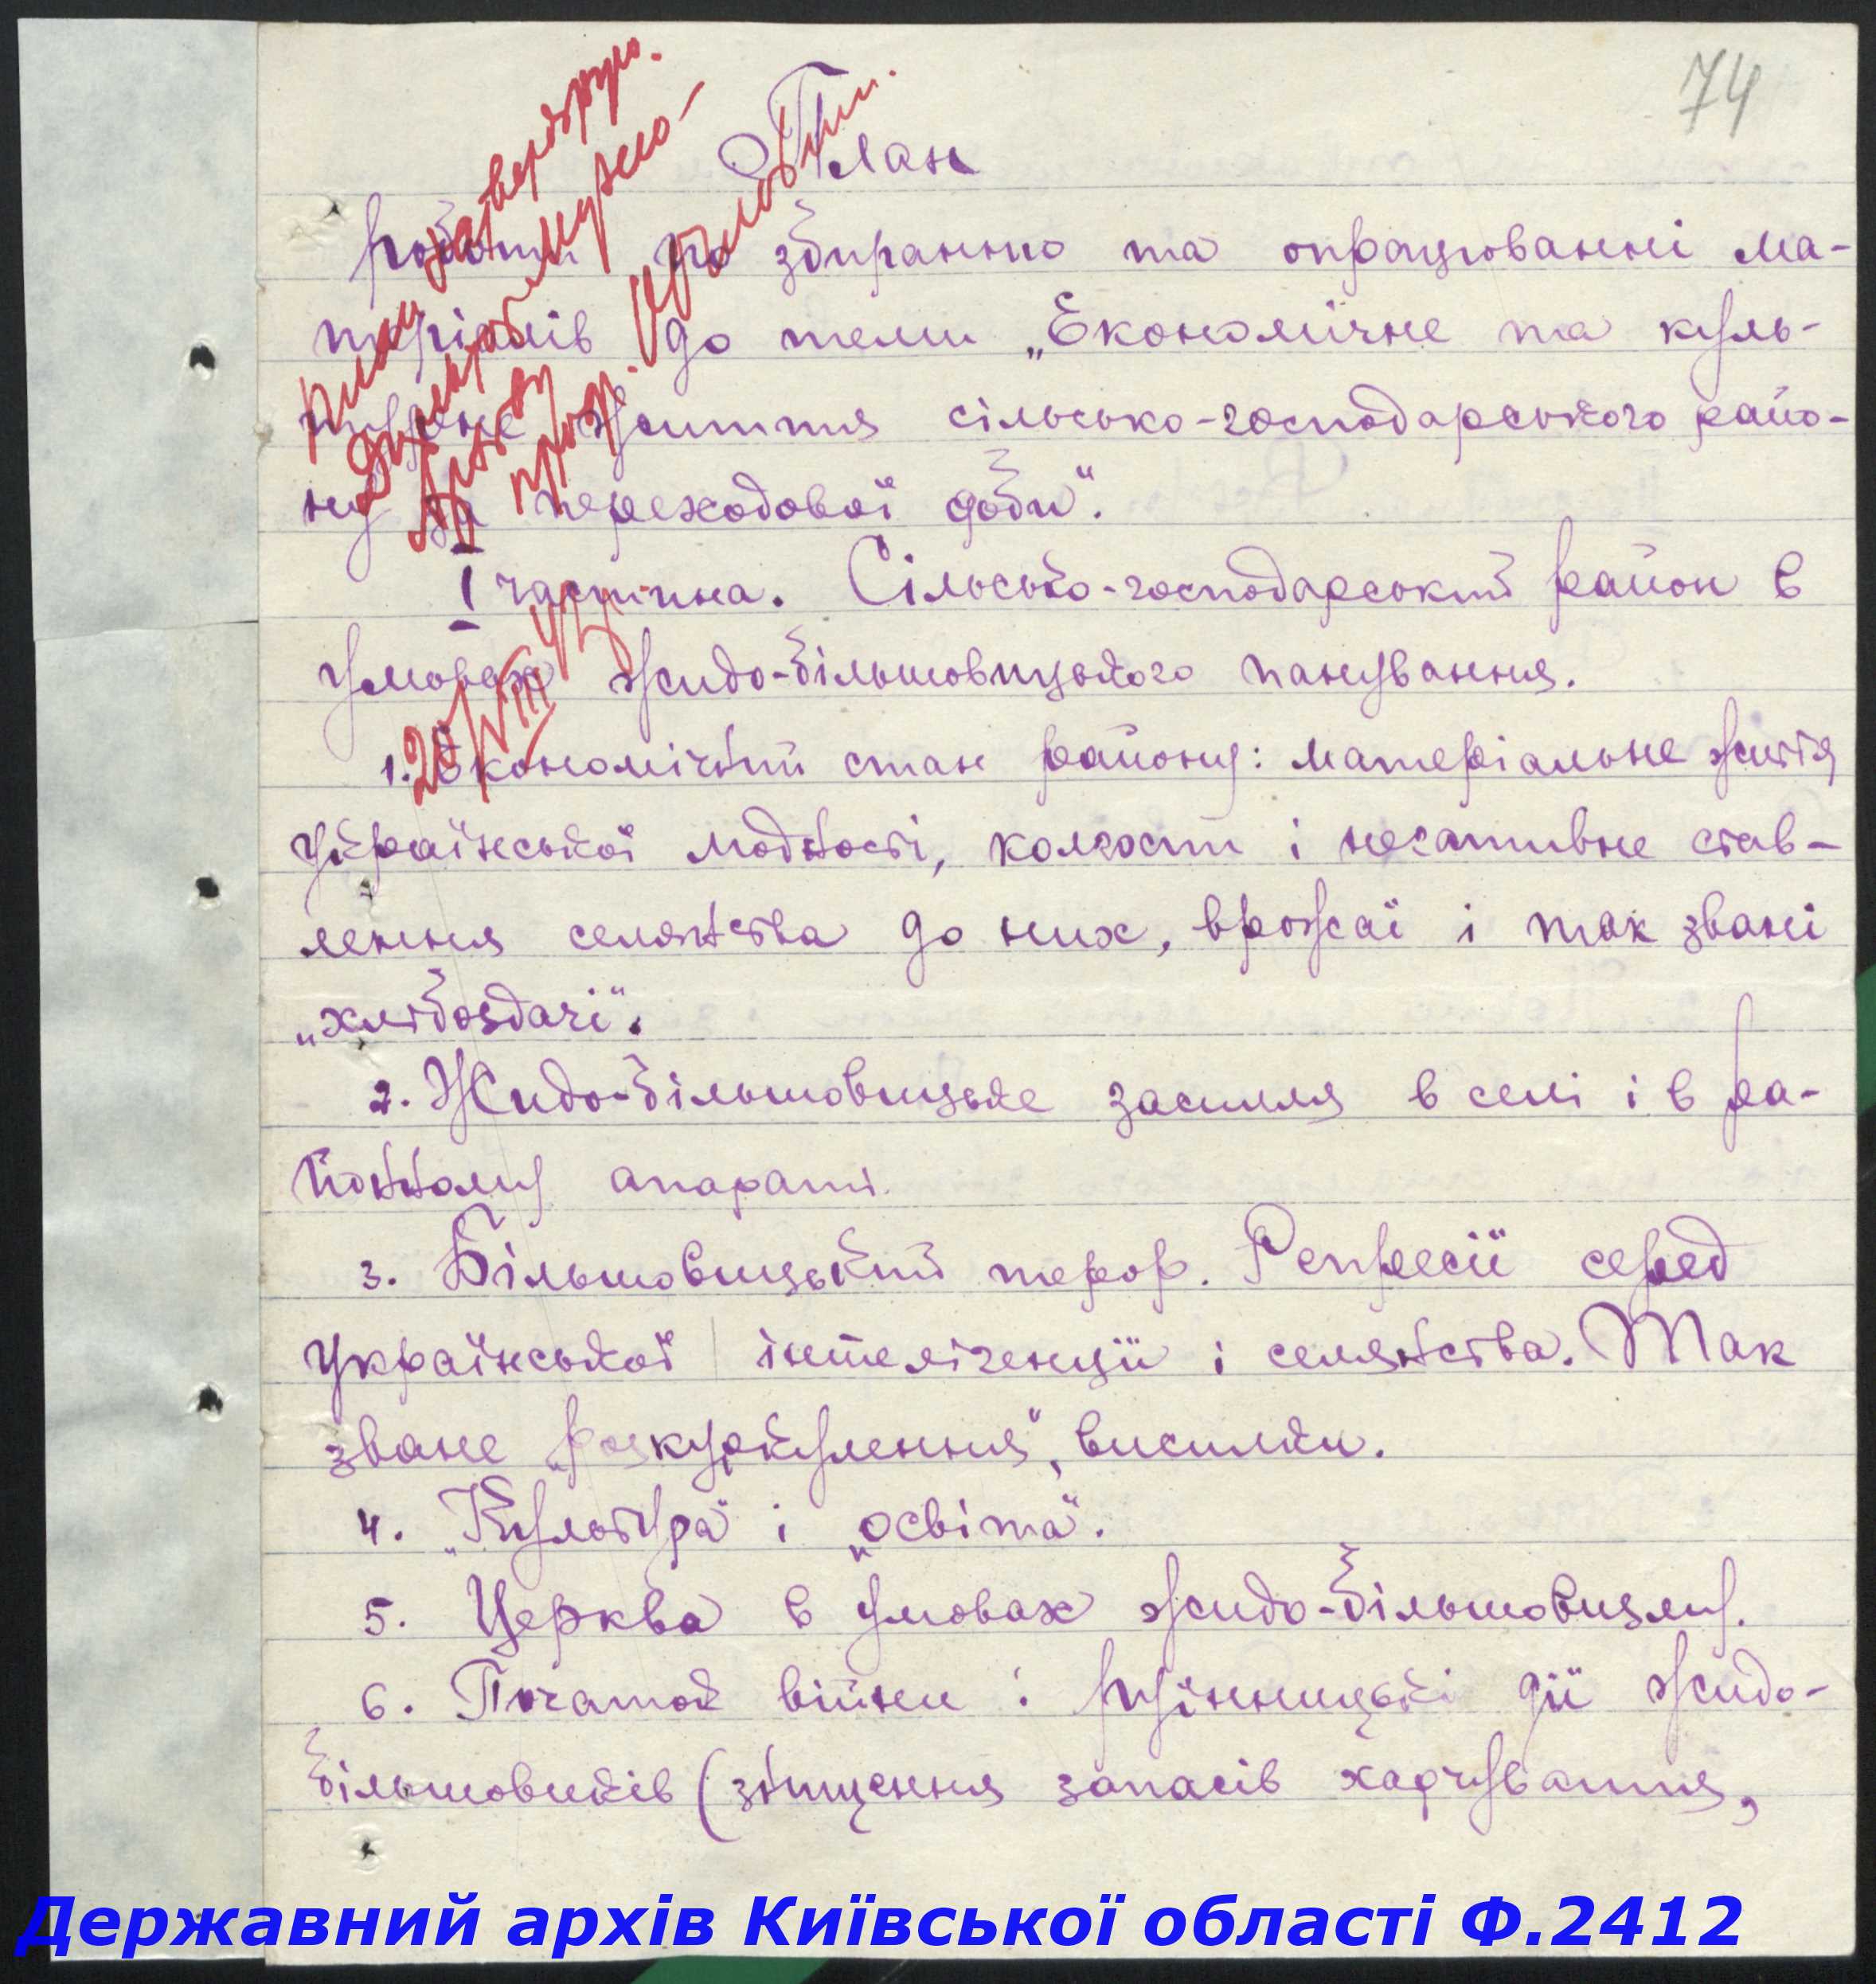 74
План
роботи по збиранню та опрацюванні ма-
теріялів до теми „Економічне та куль-
турне життя сільсько-господарського райо-
ну за переходової доби".
I частина. Сільсько-господарський район в
умовах жидо-більшовицького панування.
1. Економічний стан району: матеріальне життя
української людності, колгоспи і негативне став-
лення селянства до них, врожаї і так звані
„хлібоздачі".
2. Жидо-більшовицьке засилля в селі і в ра-
йонному апараті.
3. Більшовицький терор. Репресії серед
української інтелігенції і селянства. Так
зване „розкуркулення", висилки.
4. „Культура" і „освіта".
5. Церква в умовах жидо-більшовизму.
6. Початок війни і руїнницькі дії жидо-
більшовиків (знищення запасів харчування,
план затверджую.
проф.
Державний архів Київської області Ф.2412